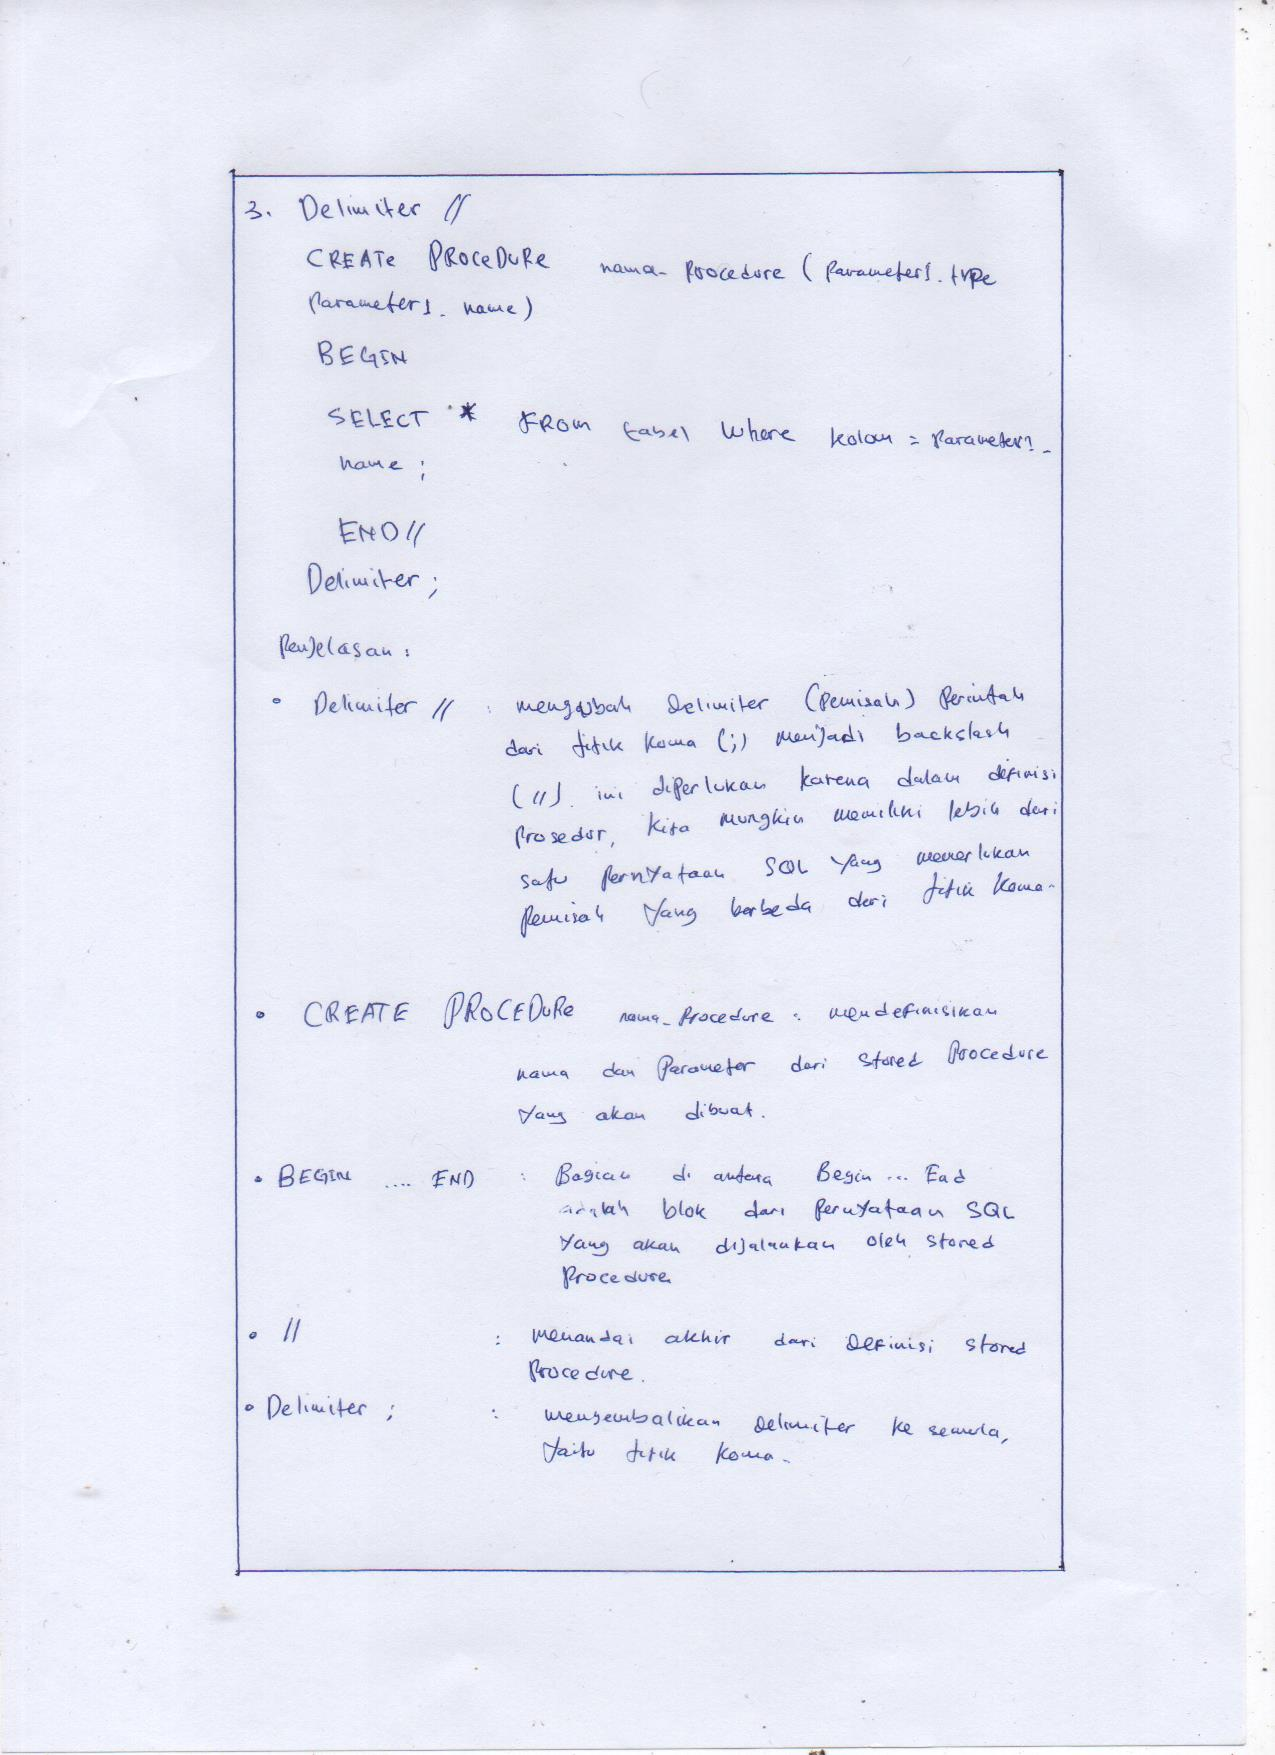 3. Delimiter //
CREATE PROCEDURE nama_procedure (parameter1.type
parameter1_name)
BEGIN
SELECT * FROM tabel where kolom = parameter1_
name ;
END //
Delimiter ;
Penjelasan :
• Delimiter // : mengubah Delimiter (pemisah) perintah
dari titik koma (;) menjadi backslash
(//). ini diperlukan karena dalam definisi
prosedur, kita mungkin memiliki lebih dari
satu pernyataan SQL yang memerlukan
pemisah yang berbeda dari titik koma.
• CREATE PROCEDURE nama_procedure : mendefinisikan
nama dan parameter dari stored procedure
yang akan dibuat.
• BEGIN .... END : Bagian di antara Begin ... End
adalah blok dari pernyataan SQL
yang akan dijalankan oleh stored
procedure
• // : menandai akhir dari definisi stored
procedure.
• Delimiter ; : mengembalikan delimiter ke semula,
yaitu titik koma.